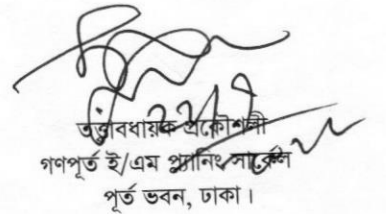 তত্ত্বাবধায়ক প্রকৌশলী
গণপূর্ত ই/এম প্ল্যানিং সার্কেল
পূর্ত ভবন, ঢাকা।